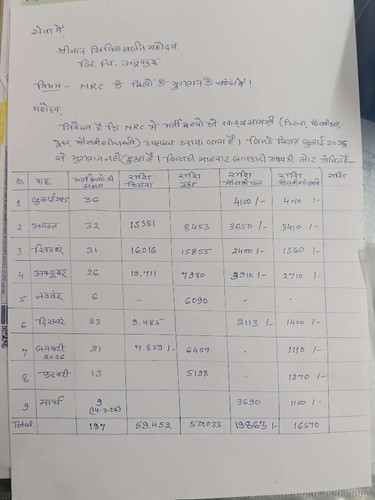 सेवा में,
श्रीमान सिविल सर्जन महोदय,
जि. चि.
विषय - NRC के बिलों के भुगतान के संबंध में।
महोदय,
निवेदन है कि NRC में भर्ती बच्चों की खाद्य सामग्री (किराना,
दूध, उपलब्ध कराया जाता है। जिसके विगत जुलाई 2025
से भुगतान नहीं हुआ है। जिसकी माहवार जानकारी
क्र. माह संख्या राशि किराना राशि दूध राशि राशि राशि
1 जुलाई 2025 36 4100/- 4010/-
2 अगस्त 32 15381 8453 3650/- 3410/-
3 सितम्बर 31 16016 15855 2400/- 1560/-
4 अक्टूबर 26 10,711 7980 3910/- 2710/-
5 नवंबर 6 - 6090 - -
6 दिसंबर 23 9,485 2113/- 1400/-
7 जनवरी 2026 21 7,859/- 6457 - 1110/-
8 फरवरी 13 5198 - 1270/-
9 मार्च 9 (14-3-26) 3690 1100/-
Total 197 59,452 50033 19863/- 16570